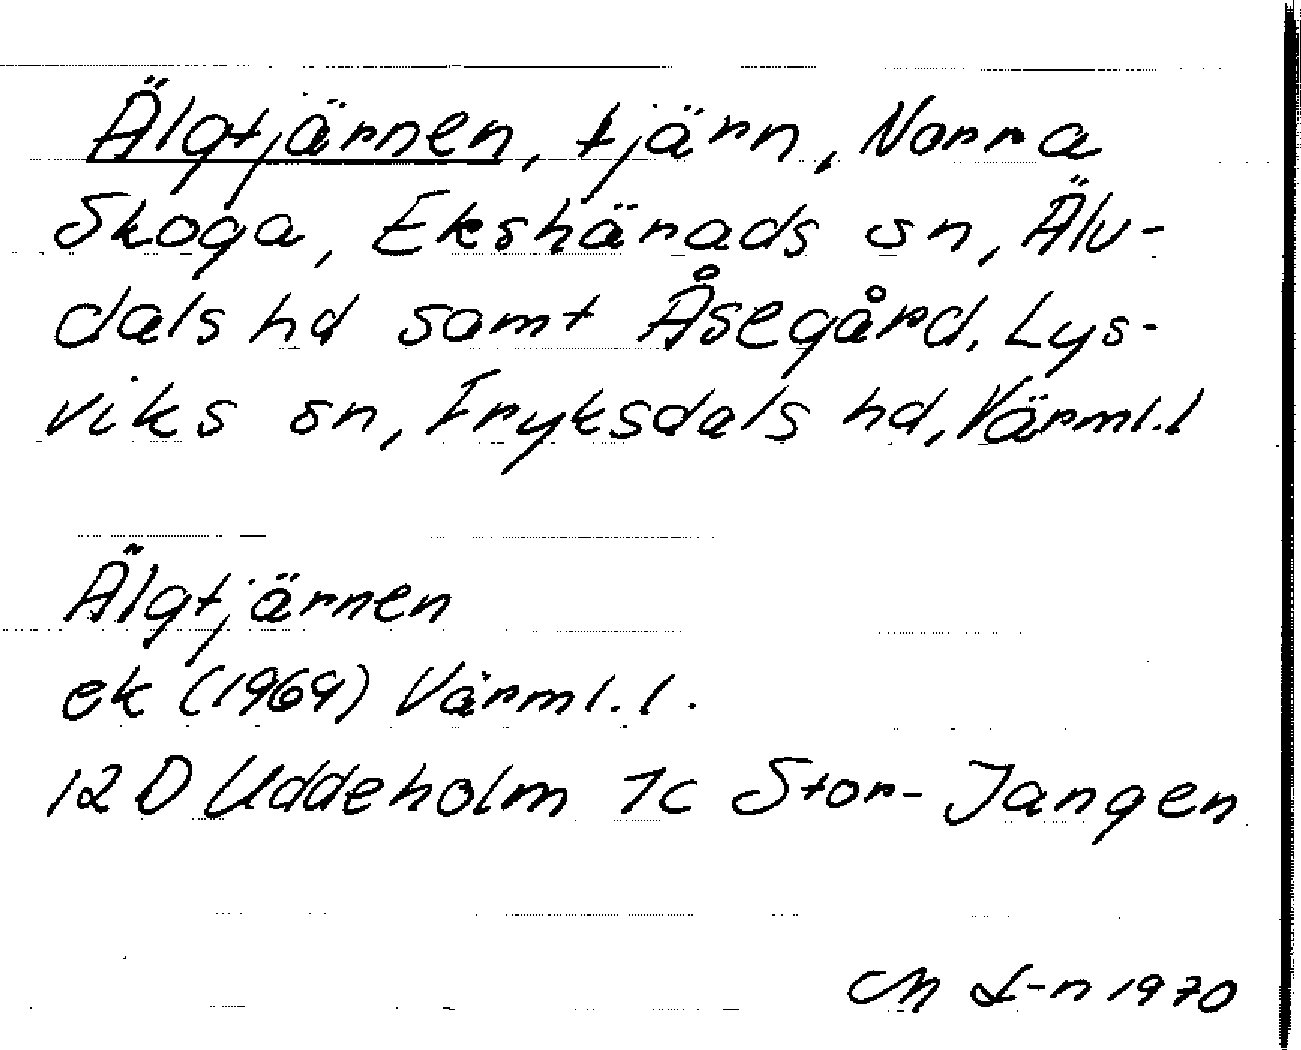 Älgtjärnen, tjärn, Norra
Skoga, Ekshärads sn, Älv-
dals hd samt Åsegård, Lys-
viks sn, Fryksdals hd, Värml.l
Älgtjärnen
ek (1969) Värml.l.
12 D Uddeholm 1c Stor-Jangen
L-n 1970